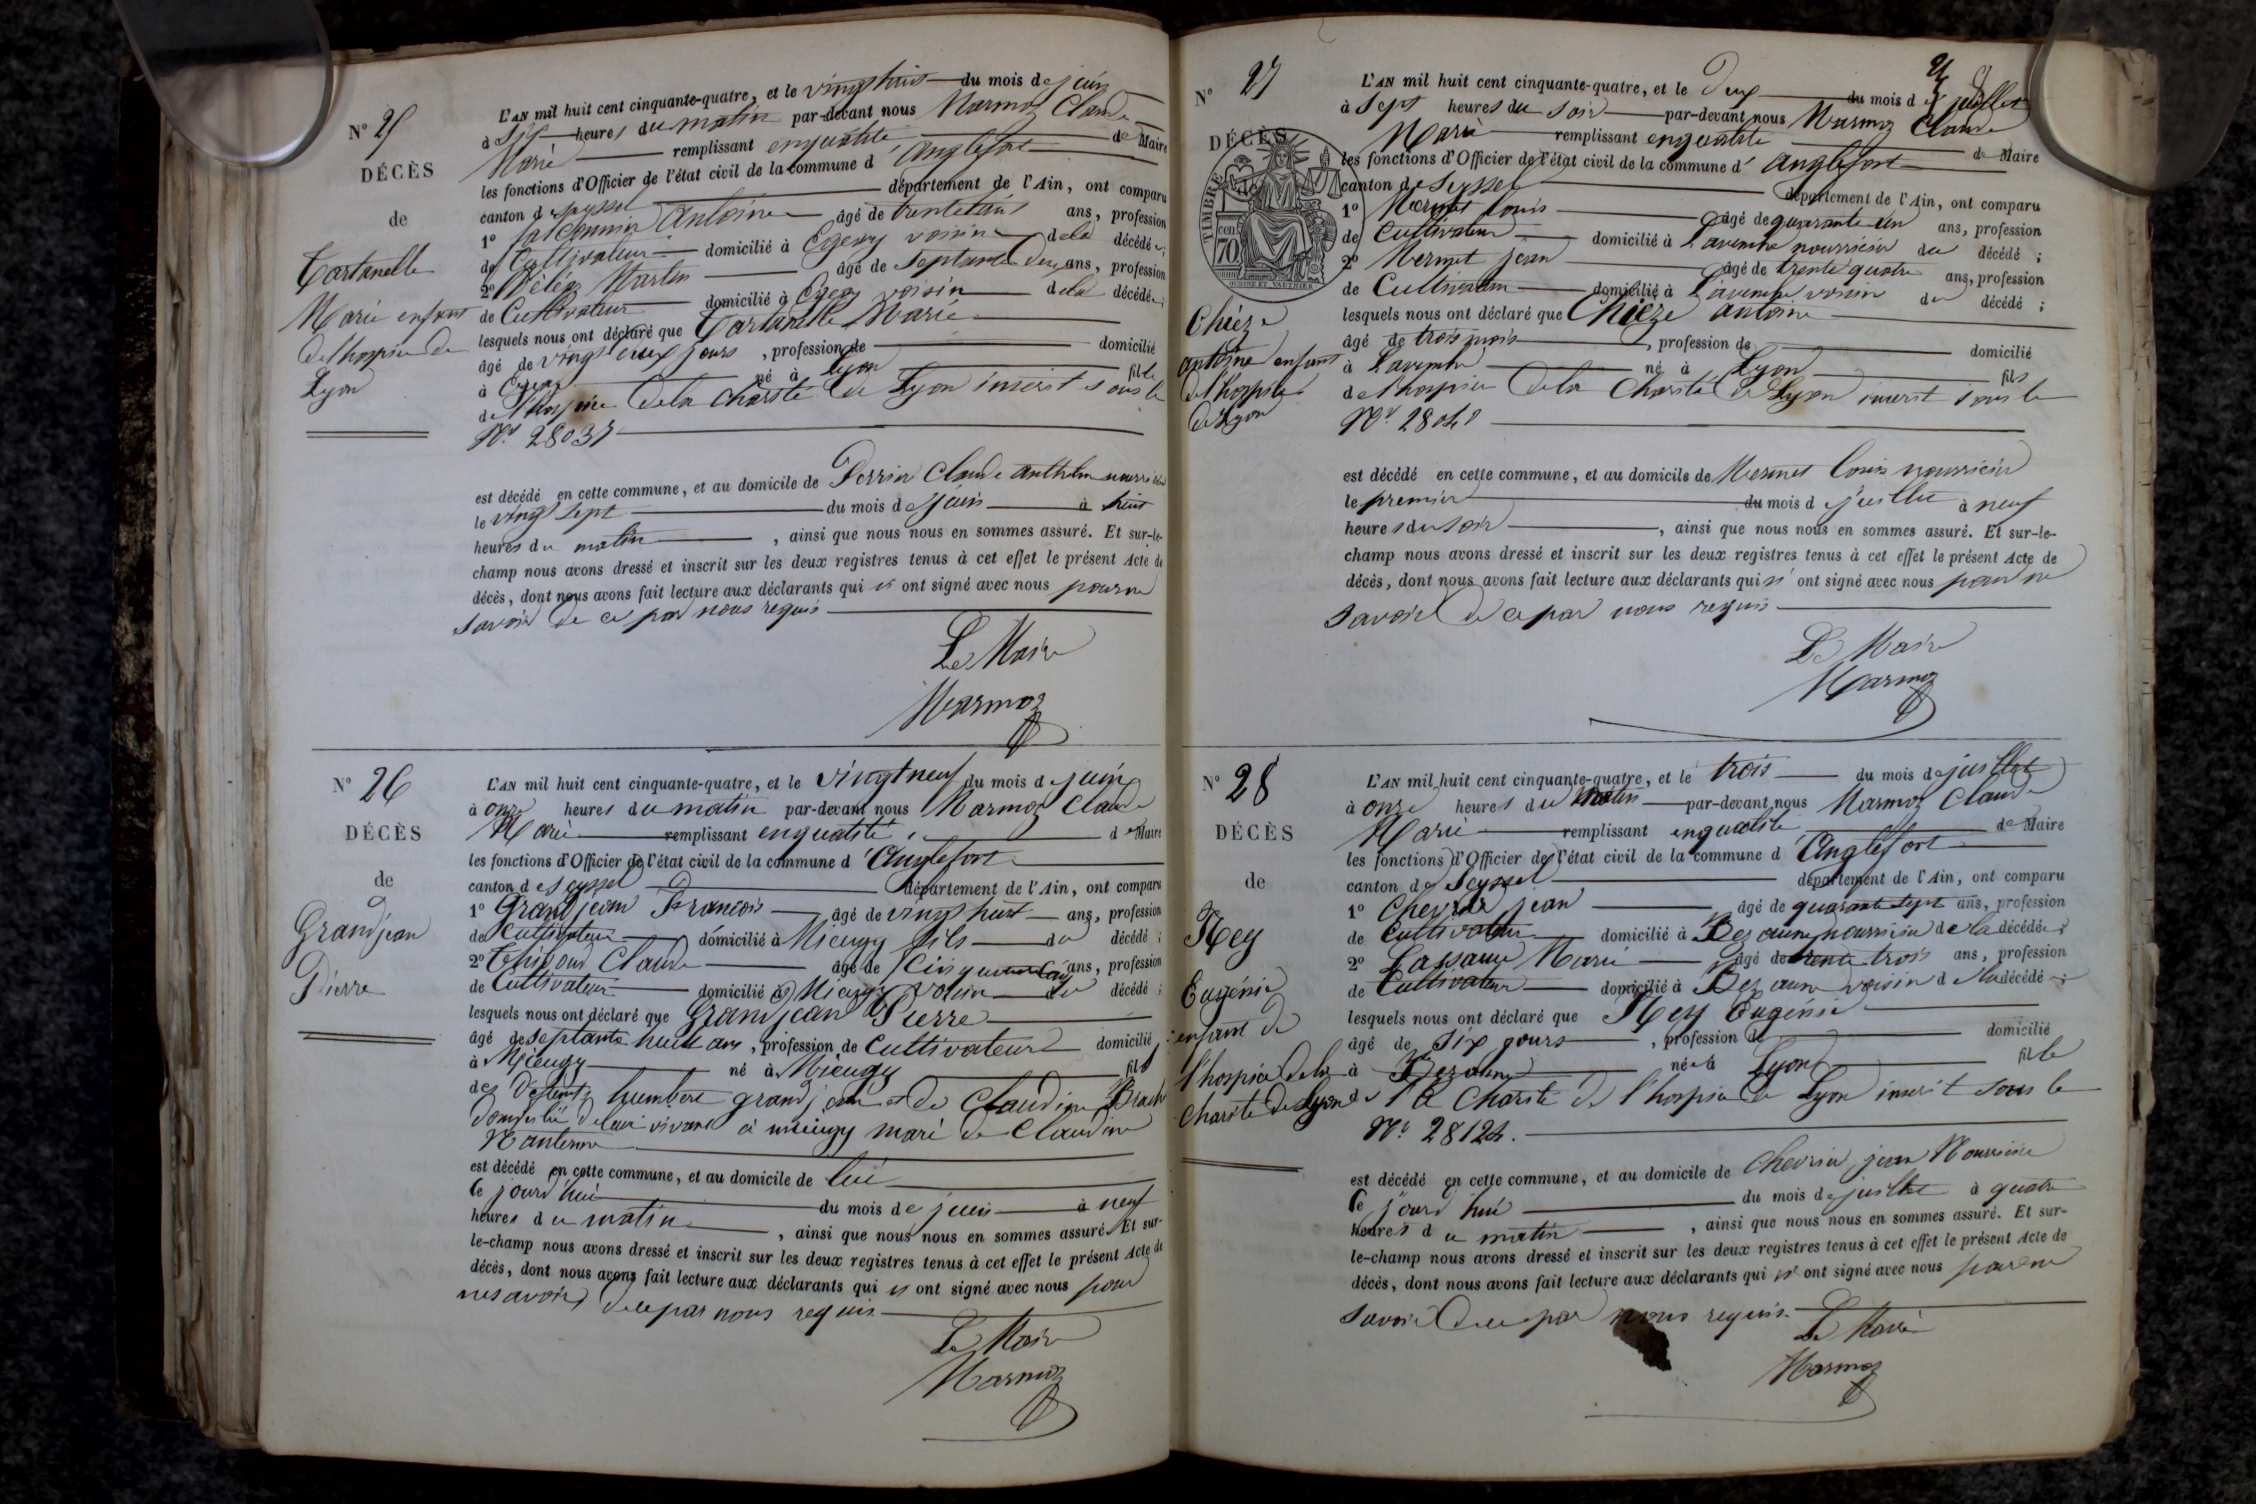 N° 25
DÉCÈS
de
Cartanelle
Marie enfant
de l'hospice de
Lyon
L'AN mil huit cent cinquante-quatre, et le vingt huit du mois de juin
à six heures du matin par-devant nous Marmoz Claude
Marie remplissant en qualité de Maire
les fonctions d'Officier de l'état civil de la commune d'Anglefort
canton de Seyssel département de l'Ain, ont comparu
1° Antoine âgé de ans, profession
de Cultivateur domicilié à voisin de la décédée;
2° Martin âgé de septante deux ans, profession
de Cultivateur domicilié à voisin de la décédée;
lesquels nous ont déclaré que Cartanelle Marie
âgé de vingt deux jours, profession de domicilié
à né à Lyon fille
de l'hospice de la Charité de Lyon inscrit sous le
N° 28037
est décédé en cette commune, et au domicile de Perrier Claude Anthelme nourricier
le vingt sept du mois de juin à huit
heures du matin, ainsi que nous nous en sommes assuré. Et sur-le-
champ nous avons dressé et inscrit sur les deux registres tenus à cet effet le présent Acte de
décès, dont nous avons fait lecture aux déclarants qui n'ont signé avec nous pour ne
savoir de ce par nous requis
Le Maire
Marmoz
N° 26
DÉCÈS
de
Grandjean
Pierre
L'AN mil huit cent cinquante-quatre, et le vingt neuf du mois de juin
à onze heures du matin par-devant nous Marmoz Claude
Marie remplissant en qualité de Maire
les fonctions d'Officier de l'état civil de la commune d'Anglefort
canton de Seyssel département de l'Ain, ont comparu
1° Grandjean François âgé de vingt huit ans, profession
de Cultivateur domicilié à Mieugy fils du décédé;
2° Claude âgé de ans, profession
de Cultivateur domicilié à Mieugy voisin du décédé;
lesquels nous ont déclaré que Grandjean Pierre
âgé de septante huit ans, profession de Cultivateur domicilié
à Mieugy né à Mieugy fils
des défunts humbert grandjean et de Claudine Brach
domicilié de leur vivant à mieugy marié de Claudine
Nanterme
est décédé en cette commune, et au domicile de lui
ce jourd'hui du mois de juin à neuf
heures du matin, ainsi que nous nous en sommes assuré. Et sur-
le-champ nous avons dressé et inscrit sur les deux registres tenus à cet effet le présent Acte de
décès, dont nous avons fait lecture aux déclarants qui n'ont signé avec nous pour
ne savoir de ce par nous requis
Le Maire
Marmoz
N° 27
DÉCÈS
TIMBRE
70
Chièze
antoine enfant
de l'hospice
de Lyon
L'AN mil huit cent cinquante-quatre, et le Deux du mois de juillet
à sept heures du soir par-devant nous Marmoz Claude
Marie remplissant en qualité de Maire
les fonctions d'Officier de l'état civil de la commune d'Anglefort
canton de Seyssel département de l'Ain, ont comparu
1° Mermet Louis âgé de quarante un ans, profession
de Cultivateur domicilié à Lavenche nourricier du décédé;
2° Mermet jean âgé de trente quatre ans, profession
de Cultivateur domicilié à Lavenche voisin du décédé;
lesquels nous ont déclaré que Chièze Antoine
âgé de trois mois, profession de domicilié
à Lavenche né à Lyon fils
de l'hospice de la Charité de Lyon inscrit sous le
N°
est décédé en cette commune, et au domicile de Mermet Louis nourricier
le premier du mois de juillet à neuf
heures du soir, ainsi que nous nous en sommes assuré. Et sur-le-
champ nous avons dressé et inscrit sur les deux registres tenus à cet effet le présent Acte de
décès, dont nous avons fait lecture aux déclarants qui n'ont signé avec nous pour ne
savoir de ce par nous requis
Le Maire
Marmoz
N° 28
DÉCÈS
de
Rey
Eugénie
enfant de
l'hospice de la
charité de Lyon
L'AN mil huit cent cinquante-quatre, et le trois du mois de juillet
à onze heures du matin par-devant nous Marmoz Claude
Marie remplissant en qualité de Maire
les fonctions d'Officier de l'état civil de la commune d'Anglefort
canton de Seyssel département de l'Ain, ont comparu
1° Chevrier jean âgé de quarante sept ans, profession
de Cultivateur domicilié à Bezaune nourricier de la décédée;
2° Lassaune Marie âgé de trente trois ans, profession
de Cultivateur domicilié à Bezaune voisin de la décédée;
lesquels nous ont déclaré que Rey Eugénie
âgé de six jours, profession de domicilié
à Bezaune née à Lyon fille
de la Charité de l'hospice de Lyon inscrit sous le
N° 28124.
est décédé en cette commune, et au domicile de Chevrier jean Nourricier
ce jourd'hui du mois de juillet à quatre
heures du matin, ainsi que nous nous en sommes assuré. Et sur-
le-champ nous avons dressé et inscrit sur les deux registres tenus à cet effet le présent Acte de
décès, dont nous avons fait lecture aux déclarants qui n'ont signé avec nous pour ne
savoir de ce par nous requis.
Le Maire
Marmoz